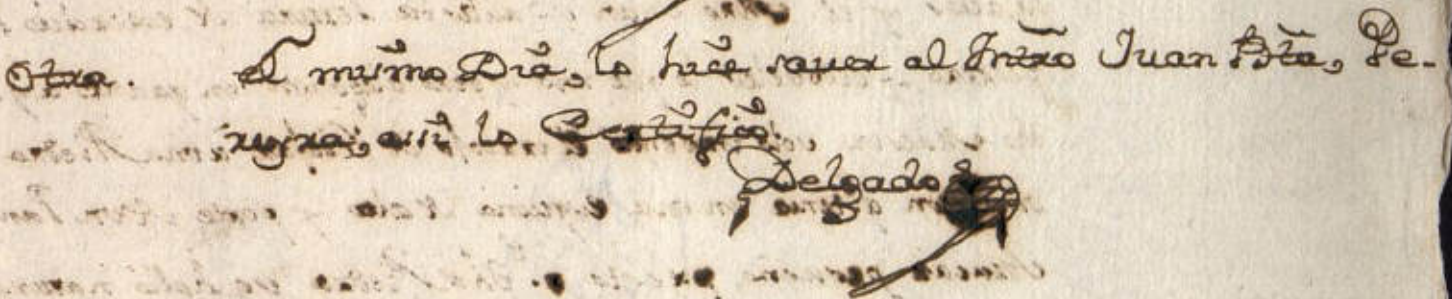 Otra. el mismo Dia, lo hice saver al Intro Juan Bta, Pe-
reyra; assi lo Certifico.
Delgado